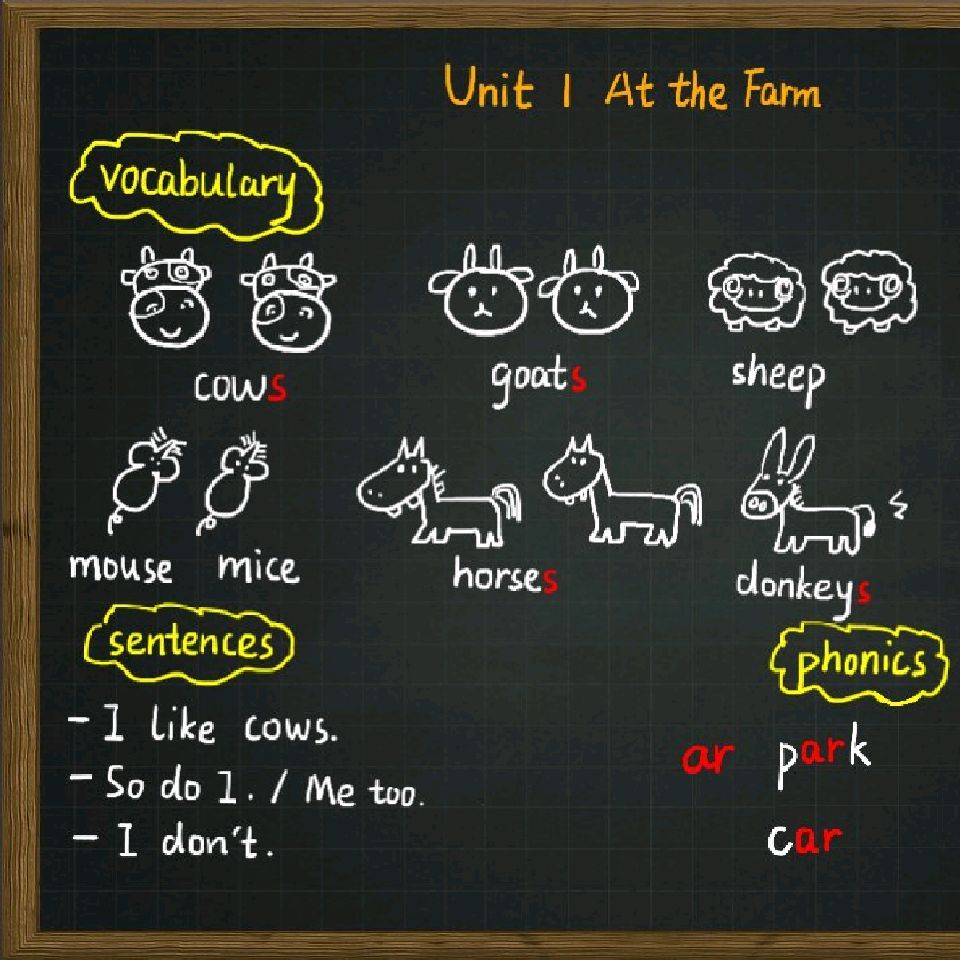 Unit 1 At the Farm
vocabulary
cows goats sheep
mouse mice horses donkeys
sentences
- I like cows.
- So do I. / Me too.
- I don't.
phonics
ar park
car